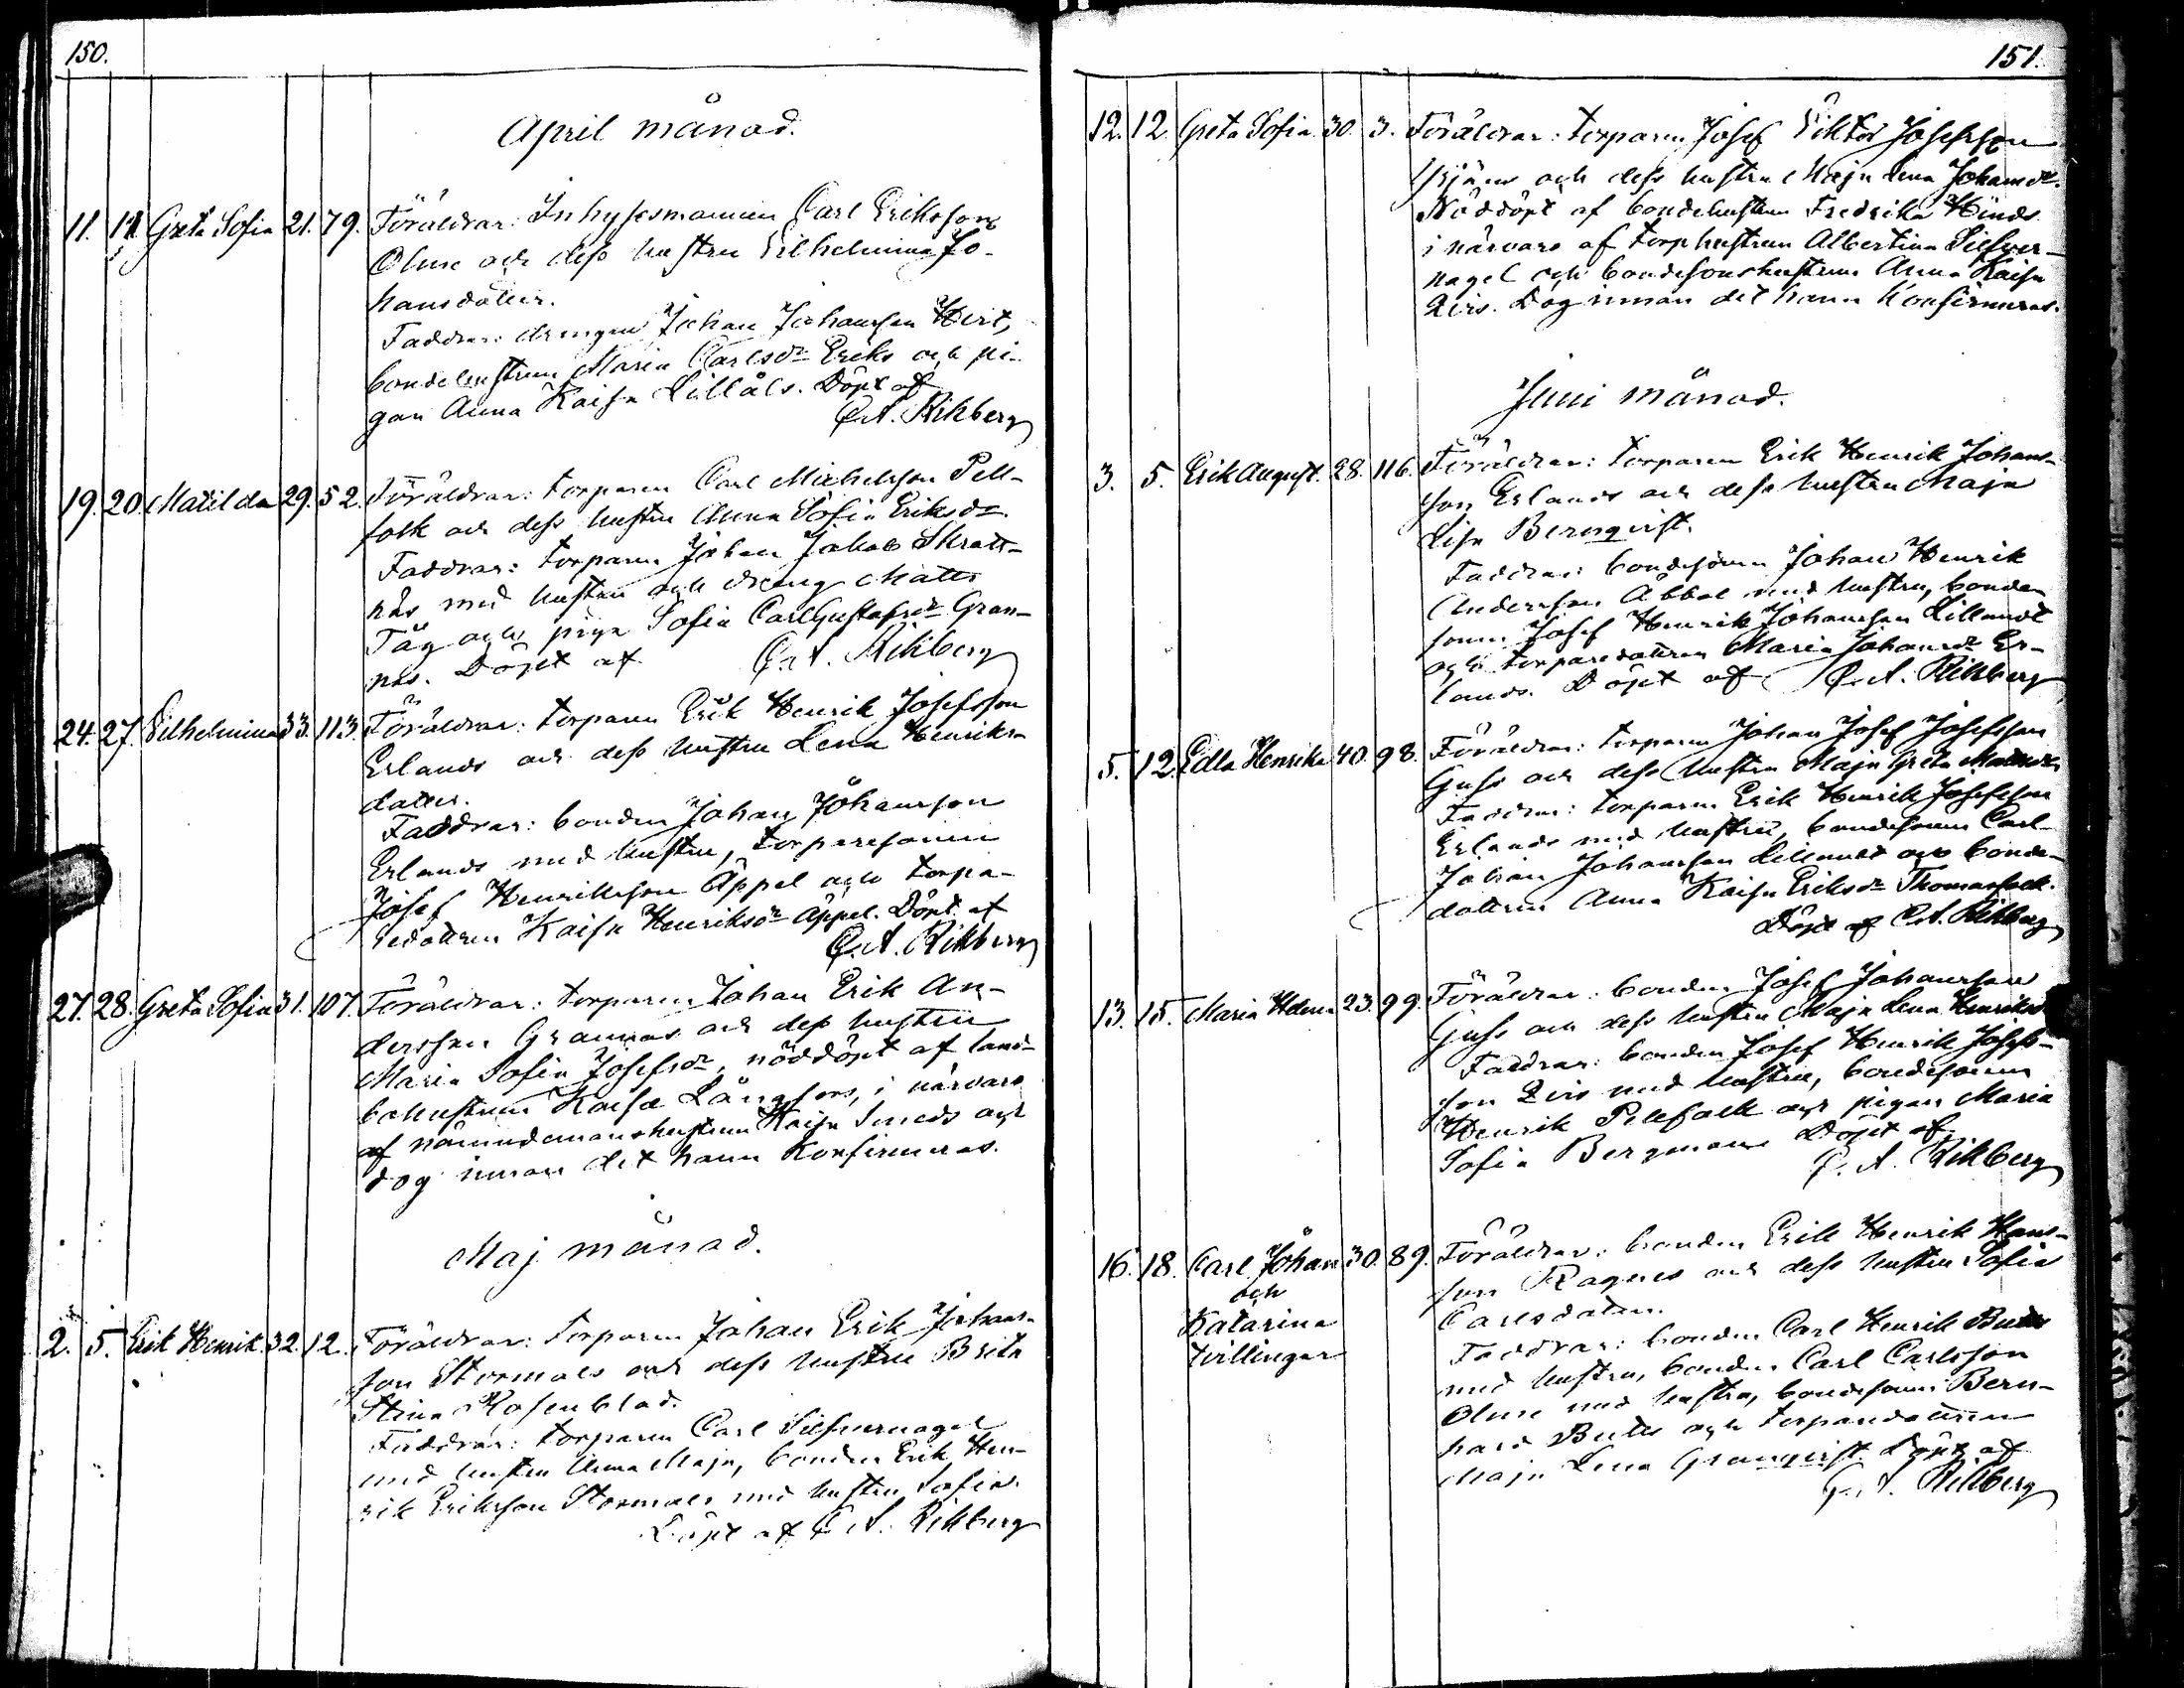 150.
April månad.
11. 11. Greta Sofia 21. 79. Föräldrar: Inhysesmannen Carl Eriksson
Olme och dess hustru Vilhelmina Jo-
hansdotter.
Faddrar: drengen Johan Johansson Hert,
bondehustrun Maria Carlsdr Eriks och pi-
gan Anna Kaisa Lillåls. Döpt af
C. A. Rikberg
19. 20. Matilda 29. 52. Föräldrar: torparen Carl Michelsson Pell-
falk och dess hustru Anna Sofia Eriksdr.
Faddrar: torparen Johan Jakob Skratt-
näs med hustru och dreng Matts
Tåg och piga Sofia CarlGustafsdr Gran-
näs. Döpt af C. A. Rikberg
24. 27. Vilhelmina 33. 113. Föräldrar: torparen Erik Henrik Josefsson
Erlands och dess hustru Lena Henriks-
dotter.
Faddrar: bonden Johan Johansson
Erlands med hustru, torparesonen
Josef Henriksson Äppel och torpa-
redottren Kaisa Henriksdr Äppel. Döpt af
C. A. Rikberg
27. 28. Greta Sofia 31. 107. Föräldrar: torparen Johan Erik An-
dersson Grannas och dess hustru
Maria Sofia Josefsdr, nöddöpt af land-
bohustrun Kaisa Långfors, i närvaro
af nämndemanshustrun Kaisa Smeds och
dog innan det hann Konfirmeras.
Maj månad.
2. 5. Erik Henrik 32. 12. Föräldrar: torparen Johan Erik Johans-
son Stormåls och dess hustru Brita
Stina Rosenblad.
Faddrar: torparen Carl Silfvernagel
med hustru Anna Maja, bonden Erik Hen-
rik Eriksson Stormåls med hustru Sofia.
Döpt af C. A. Rikberg
151.
12. 12. Greta Sofia 30. 3. Föräldrar: torparen Josef Viktor Josefsson
och dess hustru Maja Lena Johansdr.
Nöddöpt af bondehustrun Fredrika Hinds
i närvaro af torphustrun Albertina Silfver-
nagel och bondesonshustrun Anna Kaisa
Zeis. Dog innan det hann Konfirmeras.
Juni månad.
3. 5. Erik August. 28. 116. Föräldrar: torparen Erik Henrik Johans-
son Erlands och dess hustru Maja
Lisa Bernqvist.
Faddrar: bondesonen Johan Henrik
Andersson Abbal med hustru, bonde
sonen Josef Henrik Johansson Lillandt
och torparedottren Maria Johansdr Er-
lands. Döpt af C. A. Rikberg
5. 12. Edla Henrika 40. 98. Föräldrar: torparen Johan Josef Josefsson
Guss och dess hustru Maja Greta
Faddrar: torparen Erik Henrik Josefsson
Erlands med hustru, bondesonen Carl
Johan Johansson Lillandt och bonde-
dottren Anna Kaisa Eriksdr Thomasfolk.
Döpt af C. A. Rikberg
13. 15. Maria Helena 23. 99. Föräldrar: bonden Josef Johansson
Guss och dess hustru Maja Lena Henriksd
Faddrar: bonden Josef Henrik Josefs-
son Zeis med hustru, bondesonen
Henrik Pellfalk och pigan Maria
Sofia Bergman Döpt af
C. A. Rikberg
16. 18. Carl Johan 30. 89. Föräldrar: bonden Erik Henrik Hans-
och
Katarina
tvillingar
son Ragnes och dess hustru Sofia
Carlsdoter.
Faddrar: bonden Carl Henrik Butes
med hustru, bonden Carl Carlsson
Olme med hustru, bondesonen Bern-
hard Butes och torparedottren
Maja Lena Granqvist. Döpt af
C. A. Rikberg